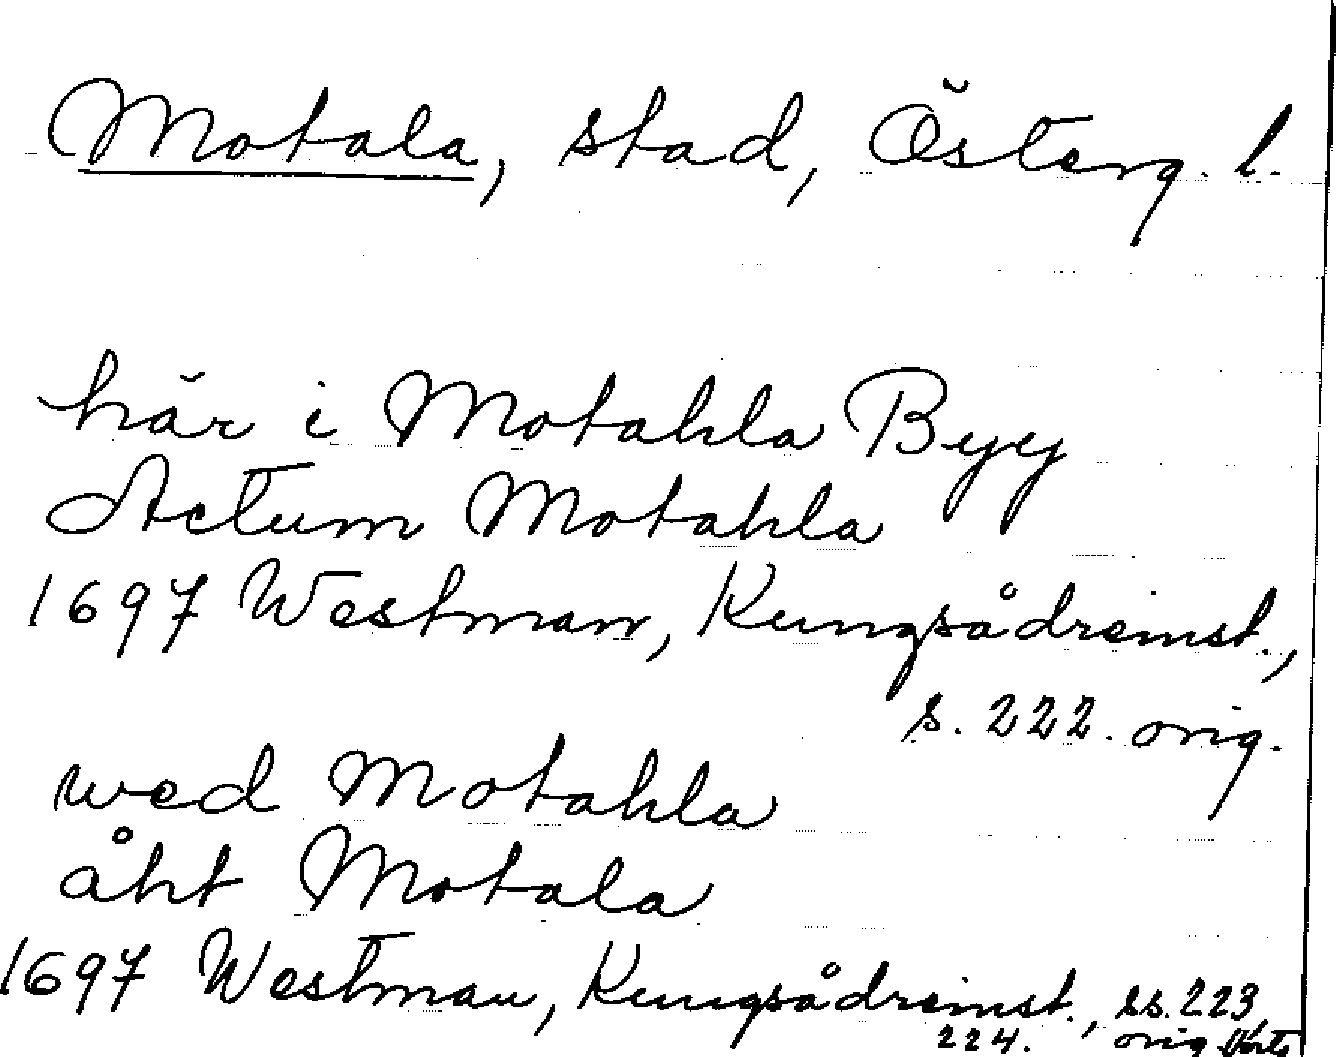 Motala, stad, Österg. l.
här i Motahla Byy
Actum Motahla
1697 Westman, Kungsådreinst.,
s. 222. orig.
wed Motahla
åht Motala
1697 Westman, Kungsådreinst., ss. 223,
224. orig.